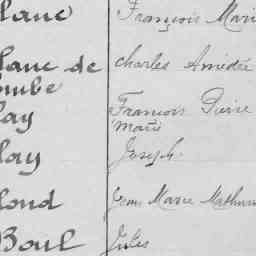 lanc François Mari
lanc de Charles Amédée
ombe
lay François Pierre
Marie
lay Joseph
lond Jean Marie Mathurin
Boul Jules